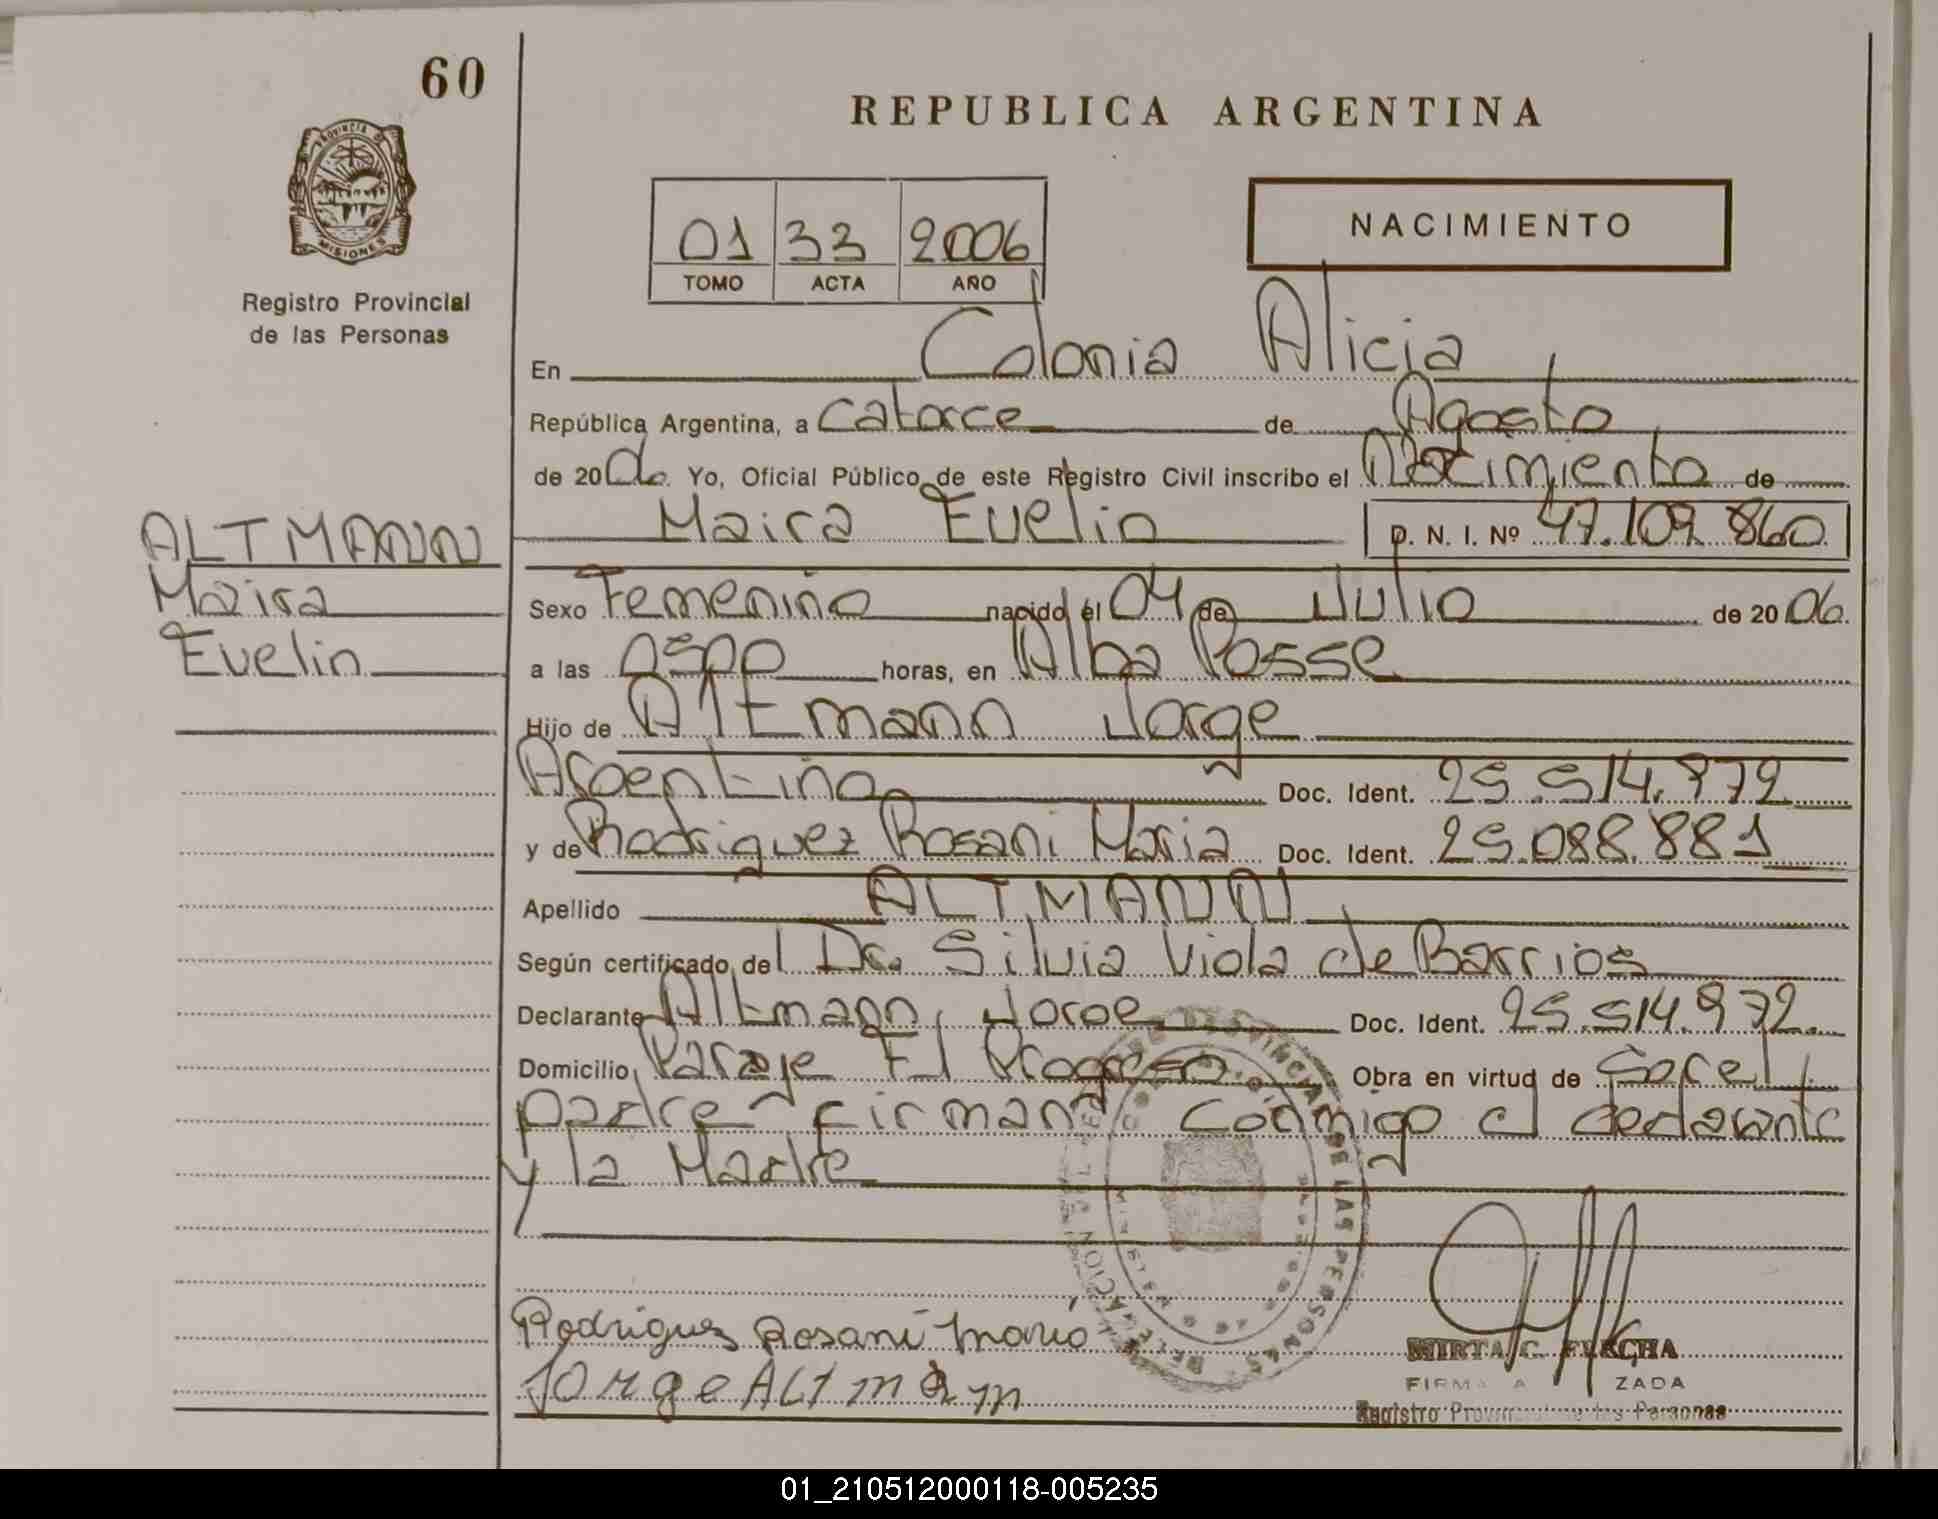 60
PROVINCIA DE
MISIONES
Registro Provincial
de las Personas
REPUBLICA ARGENTINA
01 33 2006
TOMO ACTA AÑO
NACIMIENTO
En Colonia Alicia
República Argentina, a Catorce de Agosto
de 2006 Yo, Oficial Público de este Registro Civil inscribo el Nacimiento de
Maira Evelin D. N. I. Nº 47.109.860
ALTMANN
Maira
Evelin
Sexo Femenino nacido el 04 de Julio de 2006
a las horas, en Alba Posse
Hijo de Altmann Jorge
Argentino Doc. Ident. 25.514.972
y de Rodriguez Rosani Maria Doc. Ident. 25.088.881
Apellido ALTMANN
Según certificado del Dr. Silvia Viola de Barrios
Declarante Altmann, Jorge Doc. Ident. 25.514.972
Domicilio Paraje El Progreso Obra en virtud de
padre firman conmigo el declarante
y la Madre
Rodriguez Rosani Maria
Jorge ALTmann
MIRTA C. FLECHA
FIRMA ZADA
Registro Provincial de las Personas
01_210512000118-005235